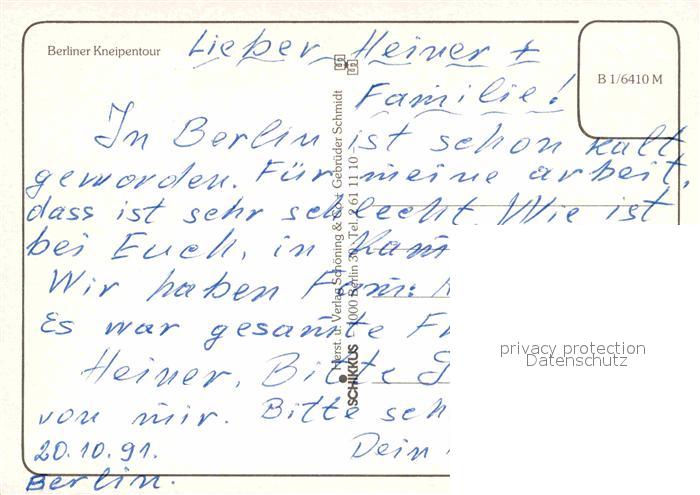 Berliner Kneipentour
B 1/6410 M
Lieber Heiner +
Familie!
In Berlin ist schon kalt
geworden. Für meine arbeit,
dass ist sehr schlecht. Wie ist
bei Euch, in
Wir haben Fam:
Es war gesamte
Heiner, Bitte
von mir. Bitte
20.10.91. Dein
Berlin.
Herst. u. Verlag Schöning & Co + Gebrüder Schmidt
SCHIKKUS – 1000 Berlin 30, Tel. 2 61 11 10
privacy protection
Datenschutz